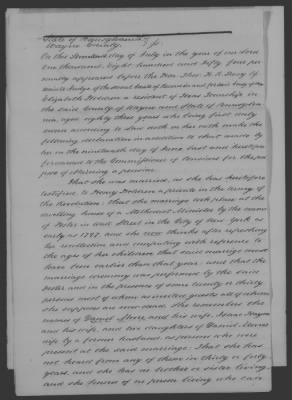 State of Pennsylvania }
Wayne County } ss.
On this day of July in the year of our Lord
One thousand Eight hundred and fifty four per
sonally appeared before the Hon.
ciate Judge of the Court
Elizabeth a resident of Township in
the said County of Wayne and State of Pennsylva
nia, aged eighty three years who being first duly
sworn according to law doth on her oath make the
following declaration in addition to that made by
her on the nineteenth day of June last and heretofore
forwarded to the Commissioner of Pensions for the pur
pose of obtaining a pension.
That she was married, as she has heretofore
testified to Henry a private in the army of
the Revolution: that the marriage took place at the
dwelling house of a Methodist Minister by the name
of in Street in the City of New York as
early as 1787 and she now thinks after refreshing
her recollection and comparing with reference to
the ages of her children that said marriage must
have been earlier than that year: and that the
marriage ceremony was performed by the said
and in the presence of some twenty or thirty
persons most of them as invited guests all of whom
she supposes are now dead. She remembers the
names of David and his wife, Isaac
and his wife, and two daughters of David
wife by a former husband as persons who were
present at the said marriage: That she has
not heard from any of them in thirty or forty
years, and she has no brother or sister living,
and she knows of no person living who can